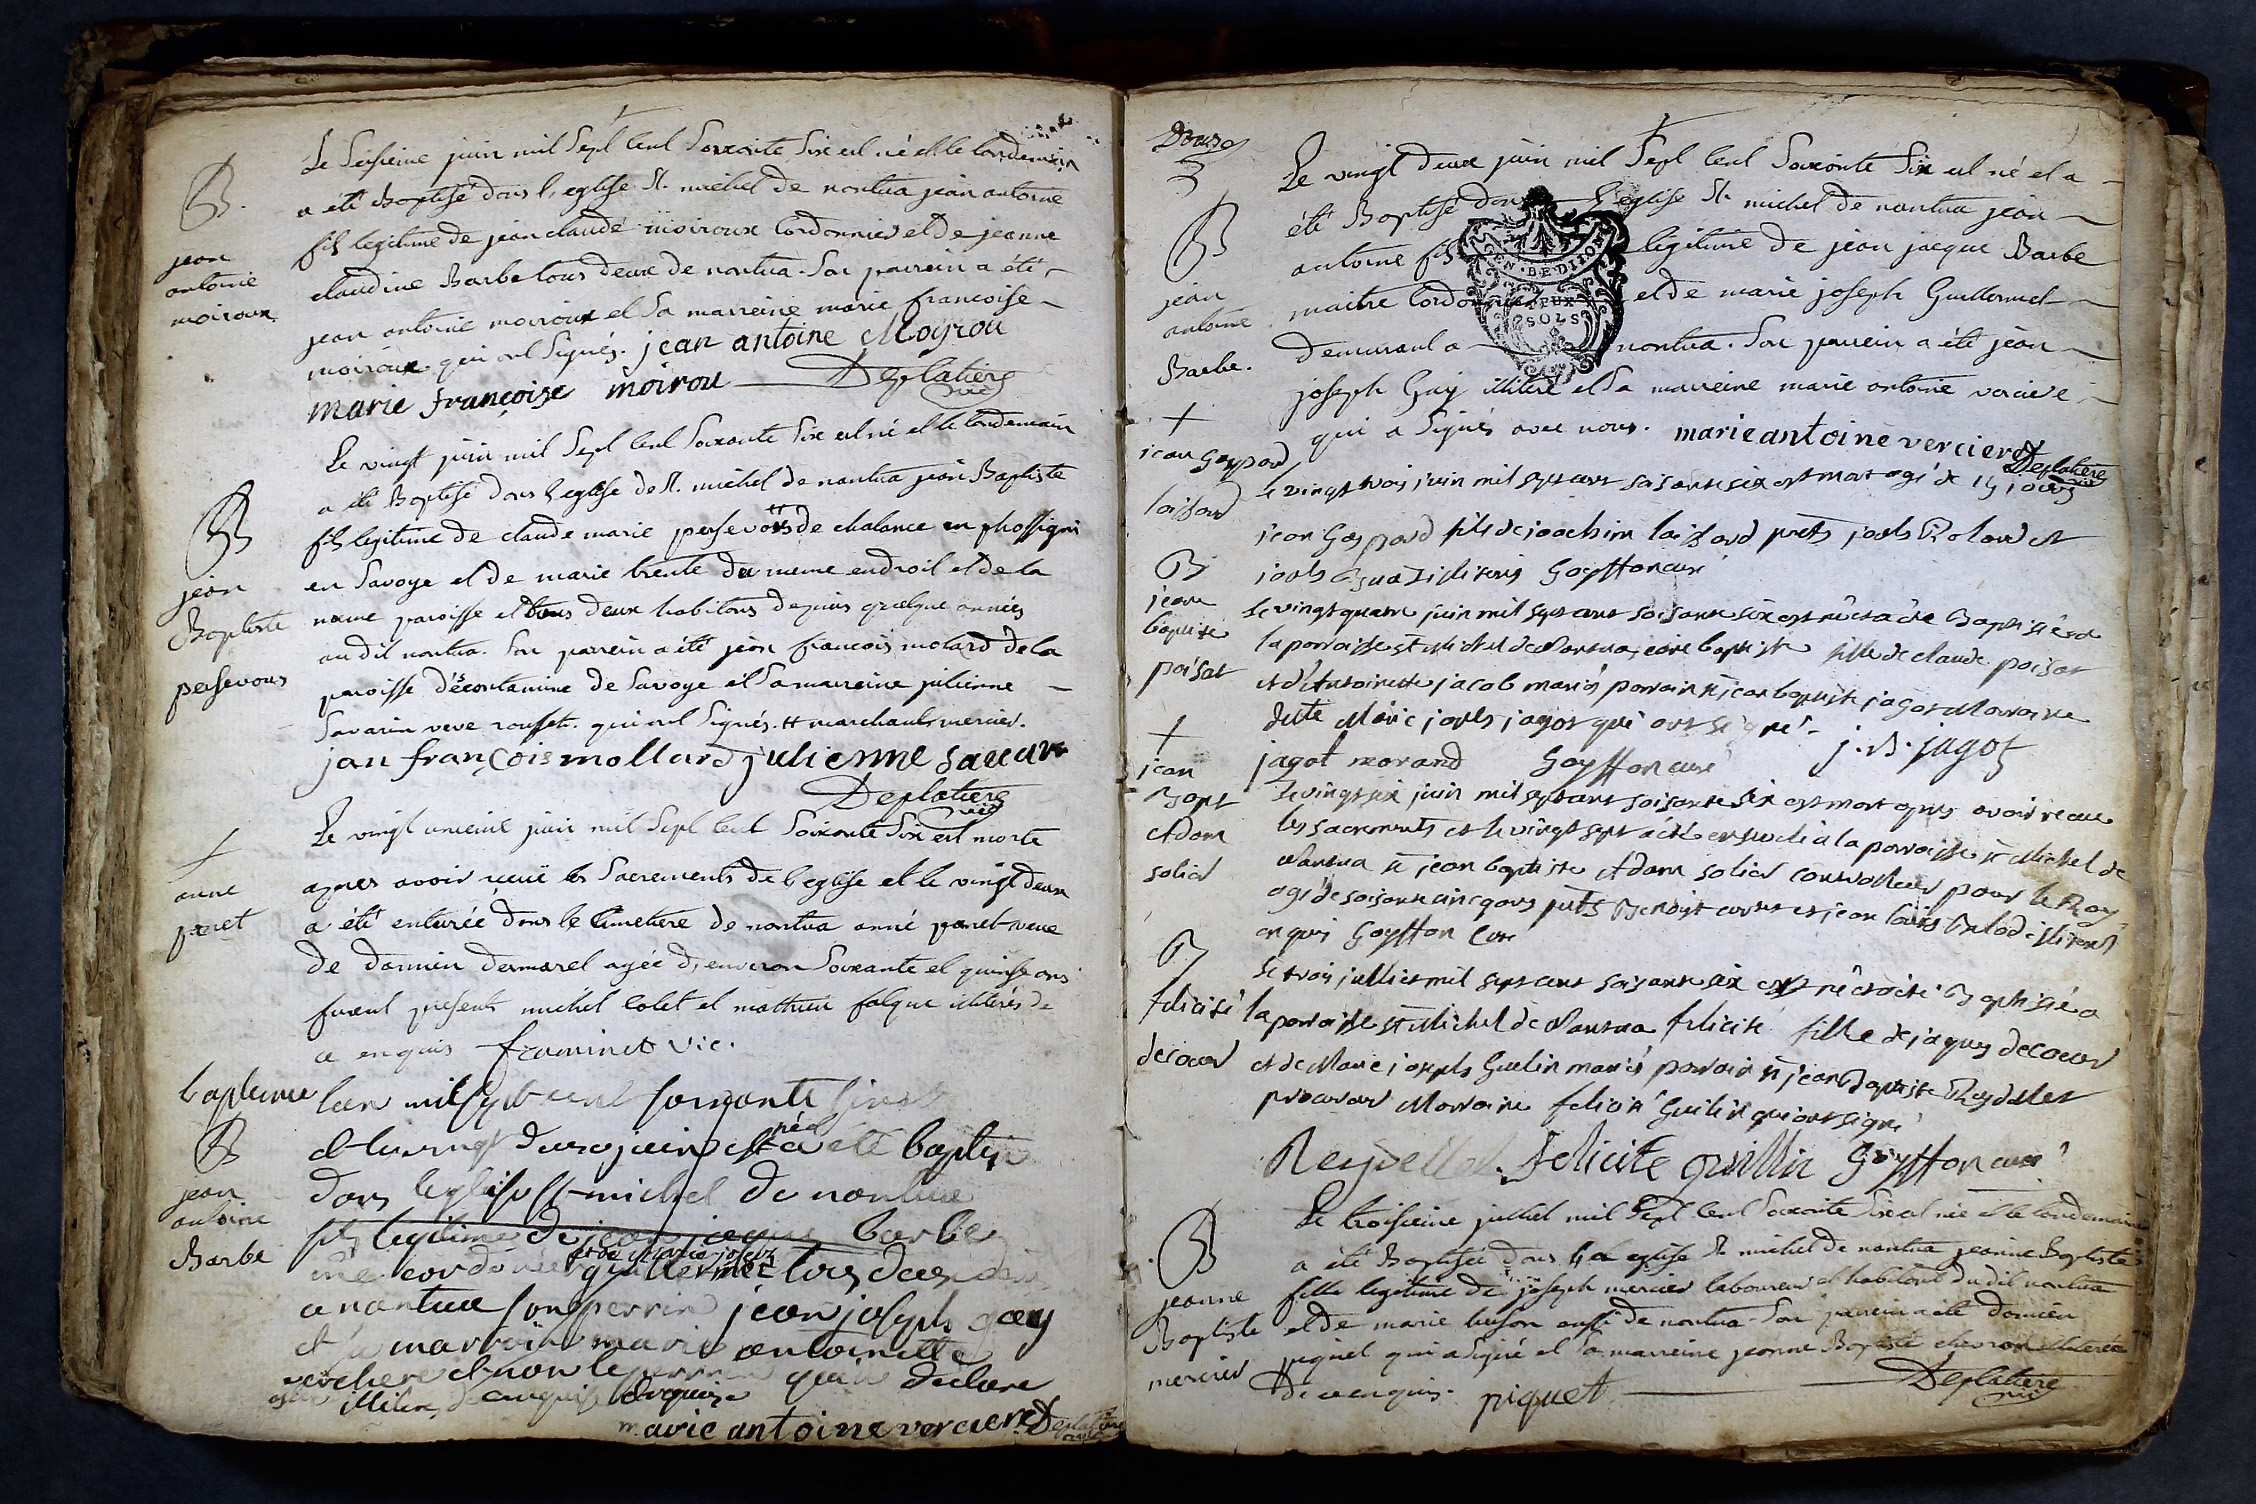 B.
jean
antoine
moiroux
Le Seisieme juin mil Sept Cent Soixante Six est né et le lendemain
a été Baptisé dans l'eglise St. michel de nantua jean antoine
fils legitime de jean claude moiroux Cordonnier et de jeanne
claudine Barbe tous deux de nantua. Son parrein a été
jean antoine moiroux et Sa marreine marie francoise
moiroux qui ont Signés. jean antoine Moyrou
marie françoise moirou Deplatiere vic
B
jean
Baptiste
persevous
Le vingt juin mil Sept Cent Soixante Six est né et le lendemain
a été Baptisé dans l'eglise de St. michel de nantua jean Baptiste
fils legitime de claude marie persevous tt de chalance en phossigni
en Savoye et de marie trente du meme endroit et de la
meme paroisse et tous deux habitans depuis quelque années
au dit nantua. Son parrein a été jean francois molard de la
paroisse d'éscontamine de Savoye et Sa marreine julienne
Savarin veve rousset. qui ont Signés. tt marchands mercier.
jan françois mollard julienne savar
Deplatiere vic
+
anne
panet
Le vingt unieme juin mil Sept Cent Soixante Six est morte
apres avoir reçue les Sacrements de l'eglise et le vingt deux
a été enterrée dans le Cimetiere de nantua anne panet veve
de damien dermarel agée d'environ Soixante et quinse ans
furent presents michel Colet et matthieu falque illiterés de
ce enquis framinet vic.
baptême
B
jean
antoine
Barbe
lan mil sept cent soissante six
et le vingt deux juin est né a été baptisé
dans leglise st michel de nantua
fils legitime de jean jaques barbe
me cordonier et de marie joseph guillermet tous deux de
a nantua son perrin jean joseph guy
et sa marraine marie antoinette
verchere et non le perrin qui a declare
illiteré de enquis enquis
marie antoine verciere Deplatiere vic
Douze
B
jean
antoine
Barbe.
Le vingt deux juin mil Sept Cent Soixante Six est né et a
été Baptisé dans l'eglise St. michel de nantua jean
antoine fils legitime de jean jacque Barbe
maitre Cordonnier et de marie joseph Guillermet
demeurant a nantua. Son parrein a été jean
joseph Guy illiteré et Sa marreine marie antoine verciere
qui a Signés avec nous. marie antoine verciere
Deplatiere vic
GEN. DE DIJON
DEUX
SOLS
+
jean Gaspard
laissard
le vingt trois juin mil sept cent soisante six est mort agé de 15 jours
jean Gaspard fils de joachim laissard prêts jacls Roland et
jacls illiterés Goyffon curé
B
jeane
baptiste
poisat
le vingt quatre juin mil sept cent soisante six est né et a été Baptisée a
la parroisse st Michel de Nantua jeane baptiste fille de claude poisat
et d'Antoinette jacob mariés parrain sr jean baptiste jagot Marraine
delle Marie jagot qui ont signé
jagot morand Goyffon curé j. B. jagot
+
jean
Bapt
Adam
solier
le vingt six juin mil sept cent soisante six est mort apres avoir receu
les sacrements et le vingt sept a été enseveli a la parroisse st Michel de
Nantua sr jean baptiste Adam solier controlleur pour le Roy
agé de soisante cinq ans prêts Benoist et jean louis illiterés
enquis Goyffon Curé
B
felicité
decoeur
le trois juillet mil sept cent soisante six est né et a été Baptisée a
la parroisse st Michel de Nantua felicité fille de jaques decoeur
et de Marie joseph Guelin mariés parrain sr jean Baptiste Reydellet
procureur Marraine felicité Guilin qui ont signé
Reydellet felicite guillin Goyffon curé
B
jeanne
Baptiste
mercier
Le troisieme juillet mil Sept Cent Soixante Six est née et le lendemain
a été Baptisée dans la eglise St. michel de nantua jeanne Baptiste
fille legitime de joseph mercier laboureur et habitant du dit nantua
et de marie buson aussi de nantua. Son parrein a été damien
piquet qui a Signé et Sa marreine jeanne Baptiste chevron illiterée
de ce enquis. piquet Deplatiere vic